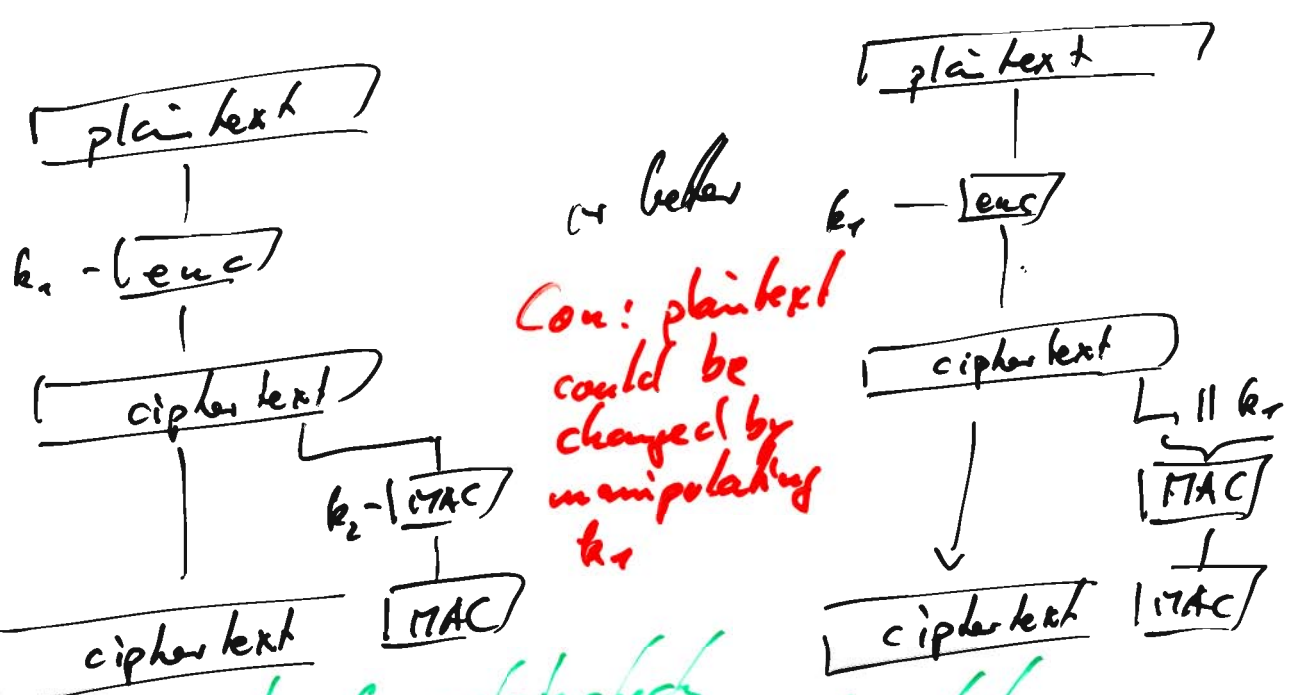 plaintext
k₁ - enc
ciphertext
k₂ - MAC
ciphertext
MAC
or better
Con: plaintext
could be
changed by
manipulating
k₁
plaintext
k₁ — enc
ciphertext
|| k₁
MAC
ciphertext
MAC